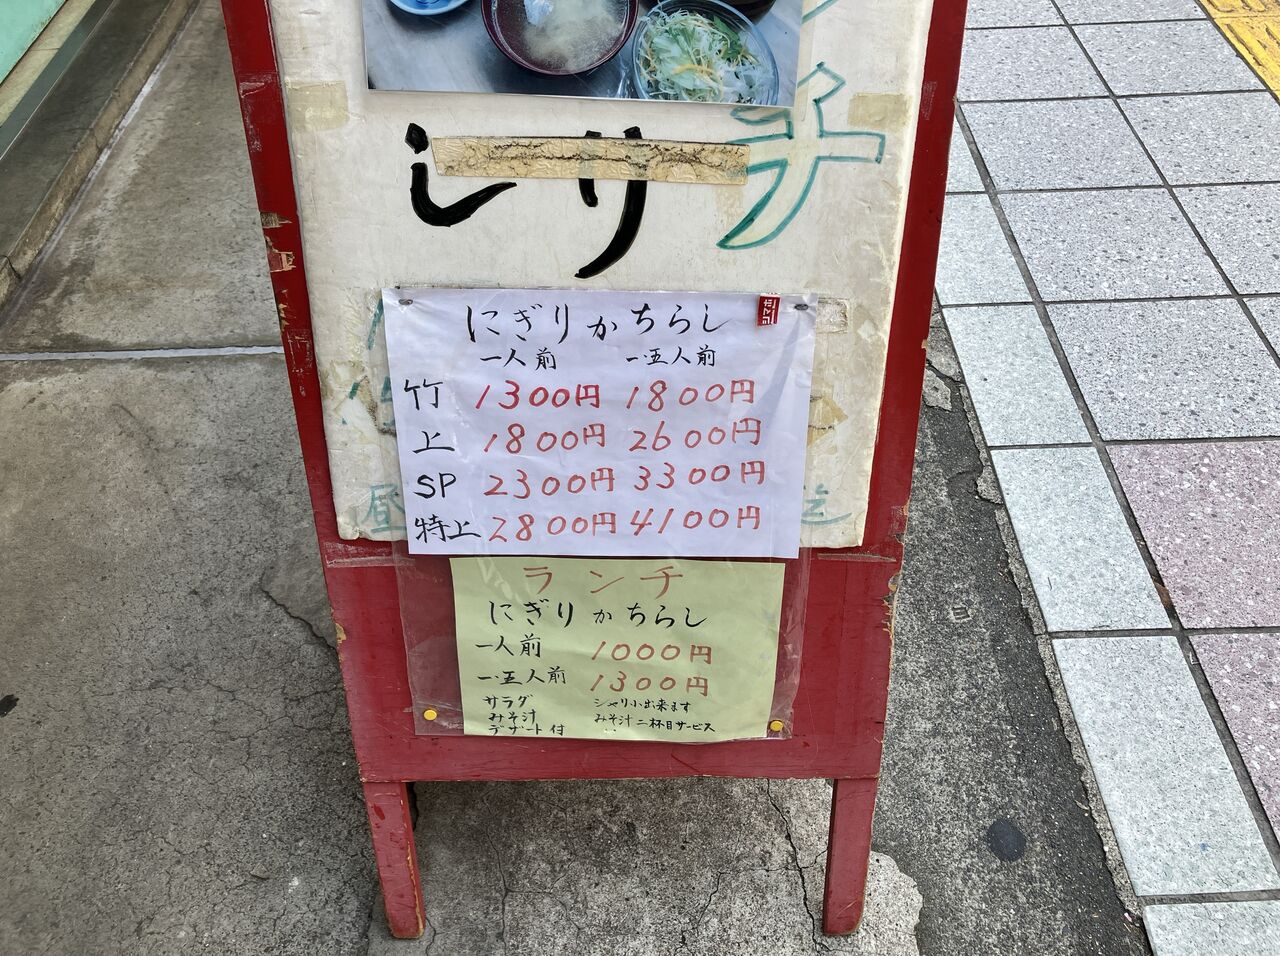 チ
にぎりかちらし
一人前 一.五人前
竹 1300円 1800円
上 1800円 2600円
SP 2300円 3300円
特上 2800円 4100円
昼
迄
ランチ
にぎりかちらし
一人前 1000円
一.五人前 1300円
サラダ シャリ小出来ます
みそ汁 みそ汁二杯目サービス
デザート付